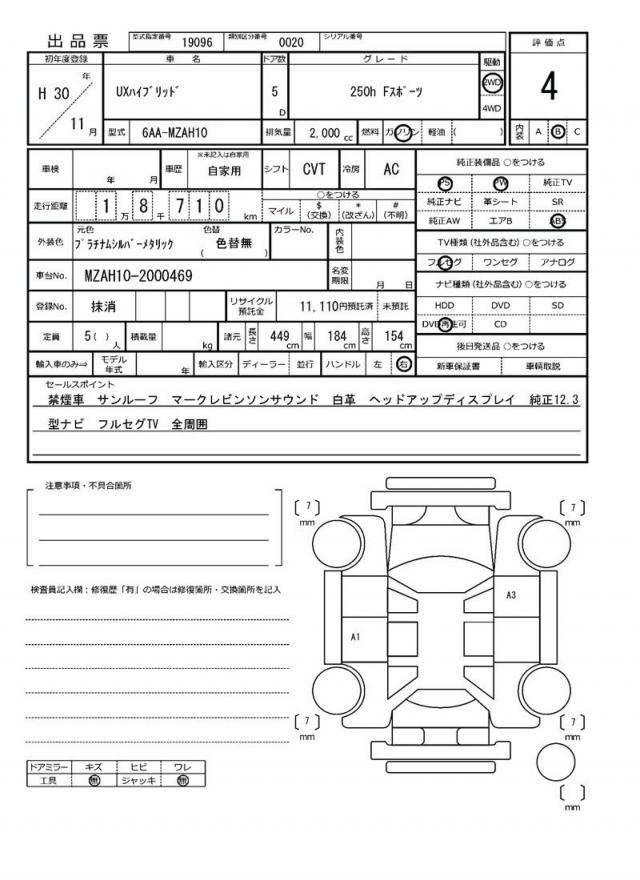 出品票 型式指定番号 19096 類別区分番号 0020 シリアル番号
評価点
4
内装 A B C
初年度登録 車名 ドア数 グレード 駆動
H 30 年 11 月
UXハイブリッド 5 D 250h Fスポーツ 2WD 4WD
型式 6AA-MZAH10 排気量 2,000 cc 燃料 ガソリン 軽油 ( )
車検 年 月 車歴 ※未記入は自家用 自家用 シフト CVT 冷房 AC
走行距離 1 万 8 千 7 1 0 km
○をつける
マイル $(交換) *(改ざん) #(不明)
外装色 元色 プラチナムシルバーメタリック 色替 ( 色替無 ) カラーNo. 内装色
車台No. MZAH10-2000469 名変期限 月 日
登録No. 抹消 リサイクル預託金 11,110円預託済 未預託
定員 5( )人 積載量 kg 諸元 長さ 449 cm 幅 184 cm 高さ 154 cm
輸入車のみ⇒ モデル年式 年 輸入区分 ディーラー 並行 ハンドル 左 右
純正装備品 ○をつける
PS PW 純正TV
純正ナビ 革シート SR
純正AW エアB ABS
TV種類(社外品含む)○をつける
フルセグ ワンセグ アナログ
ナビ種類(社外品含む)○をつける
HDD DVD SD
DVD再生可 CD
後日発送品 ○をつける
新車保証書 車輌取説
セールスポイント
禁煙車 サンルーフ マークレビンソンサウンド 白革 ヘッドアップディスプレイ 純正12.3
型ナビ フルセグTV 全周囲
注意事項・不具合箇所
検査員記入欄：修復歴「有」の場合は修復箇所・交換箇所を記入
[ 7 ] mm
[ 7 ] mm
A3
A1
[ 7 ] mm
[ 7 ] mm
[ ] mm
ドアミラー キズ ヒビ ワレ
工具 無 ジャッキ 無